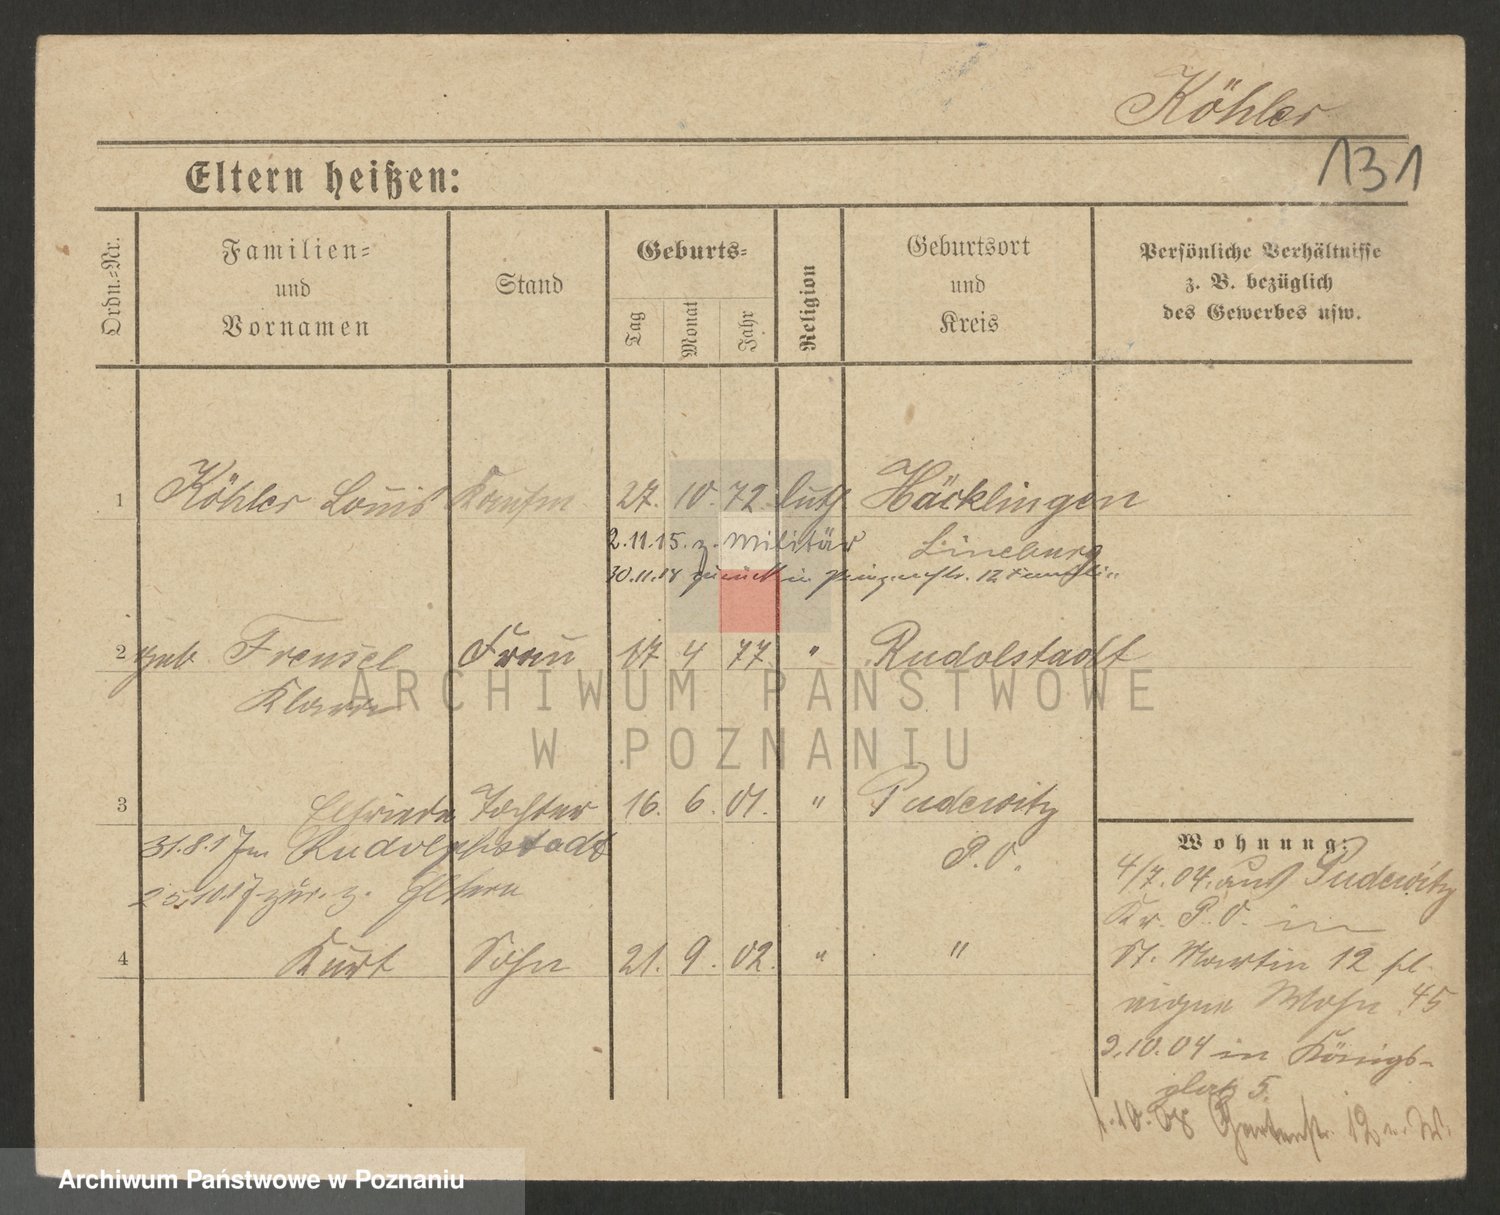 Köhler
131
Eltern heißen:
Ordn.-Nr.
Familien-
und
Vornamen
Stand
Geburts-
Tag
Monat
Jahr
Religion
Geburtsort
und
Kreis
Persönliche Verhältnisse
z. B. bezüglich
des Gewerbes usw.
1 Köhler Louis Kaufm. 27. 10. 72. luth. Häcklingen
2.11.15. z. Militär Lüneburg
30.11.18 zurück in 12
2 geb Frensel Frau 17 4 77. " Rudolstadt
Klara
3 Elfriede Tochter 16. 6. 01. " Pudewitz
31.8.17 in Rudolphstadt P. O.
25.10.17 zur. z. Eltern
4 Kurt Sohn 21. 9. 02. " "
Wohnung:
4/7. 04. aus Pudewitz
Kr. P. O. in
St. Martin 12 pl.
eigne Wohn 45
2.10.04 in Königs-
platz 5.
1.10.08 Gartenstr. 12 n. W.
ARCHIWUM PAŃSTWOWE
W POZNANIU
Archiwum Państwowe w Poznaniu